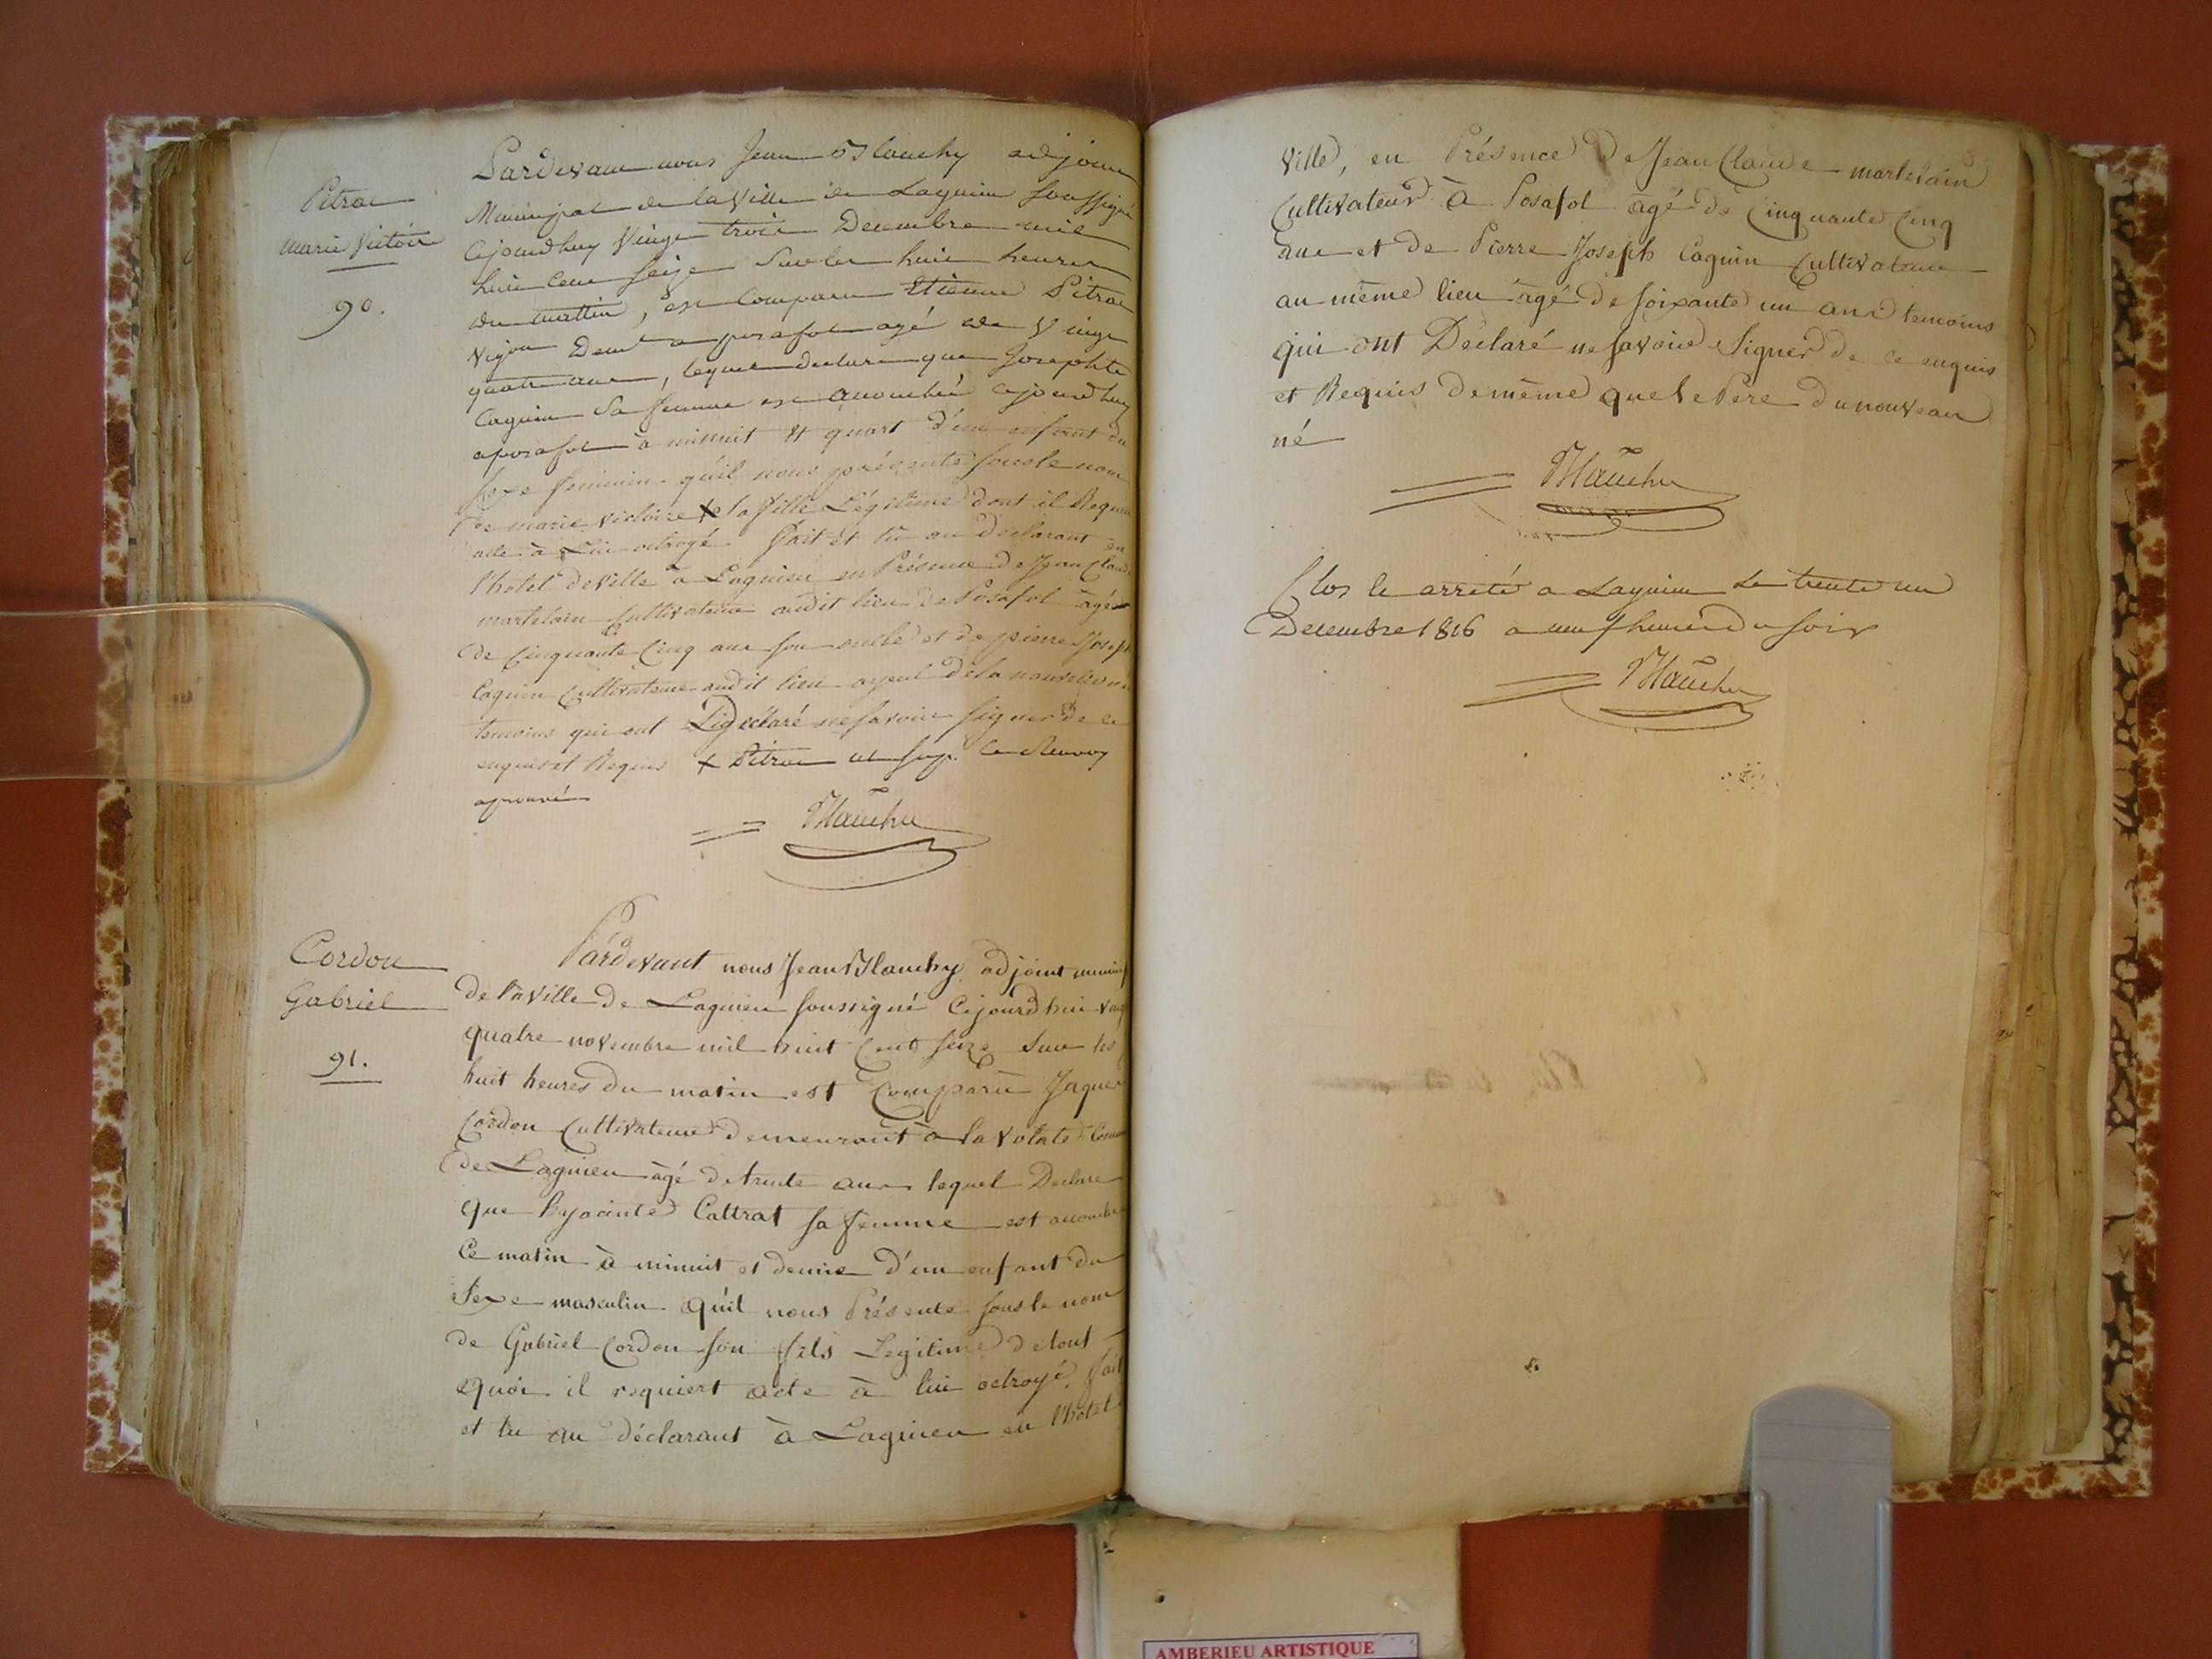 Pitrat
marie Victoire
90.
Pardevant nous Jean Blanchy adjoint
Municipal de la Ville de Lagnieu Soussigné
Cejourdhuy Vingt trois Decembre mil
huit cent Seize Sur les huit heures
du mattin, est Comparu Etienne Pitrat
Vigon Demt a posafol agé de Vingt
quatre ans, lequel declare que Josephte
Caguin Sa femme est accouchée cejourdhuy
a posafol à minuit et quart d'un enfant du
Sexe feminin qu'il nous présente sous le nom
de marie victoire X sa fille Légitime dont il Requiert
acte à Lui octroyé. Fait et lu au Déclarant en
l'hotel de Ville à Lagnieu en Présence de Jean Claude
martelain Cultivateur audit lieu de Posafol âgé
de Cinquante Cinq ans son oncle et de pierre Joseph
Caguin Cultivateur audit lieu ayeul de la nouvelle née
temoins qui ont Déclaré ne savoir signer de ce
enquis et Requis X Pitrat le Renvoy
aprouvé
Blanchy
Cordon
Gabriel
91.
Pardevant nous Jean Blanchy adjoint municip
de la Ville de Lagnieu soussigné Cejourd'hui vingt
quatre novembre mil huit Cent Seize Sur les
huit heures du matin est Comparu Jaque
Cordon Cultivateur demeurant à la Volate Comm
de Lagnieu âgé de trente ans lequel Declare
que hyacinte Cattrat sa femme est accouché
Ce matin à minuit et demie d'un enfant du
Sexe masculin qu'il nous Présente sous le nom
de Gabriel Cordon son fils Legitime de tout
quoi il requiert acte à lui octroyé. Fait
et lu au déclarant à Lagnieu en l'hotel
Ville, en Présence De Jean Claude martelain
Cultivateur à Posafol agé de Cinquante Cinq
ans et de Pierre Joseph Caguin Cultivateur
au même lieu âgé de soixante un ans temoins
qui ont Déclaré ne savoir Signer de ce enquis
et Requis De même que le Père du nouveau
né
Blanchy
Clos le arreté a Lagnieu Le trente un
Decembre 1816 a neuf heures du soir
Blanchy
AMBERIEU ARTISTIQUE